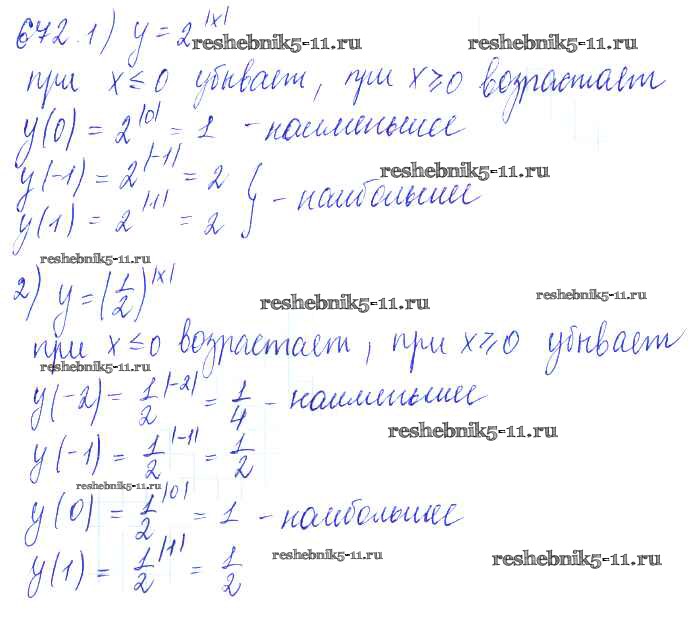 672. 1) y = 2^|x| reshebnik5-11.ru
при x ≤ 0 убывает, при x ⩾ 0 возрастает
y(0) = 2^|0| = 1 – наименьшее
reshebnik5-11.ru
y(-1) = 2^|-1| = 2
y(1) = 2^|1| = 2 } – наибольшее
reshebnik5-11.ru
2) y = (1/2)^|x| reshebnik5-11.ru reshebnik5-11.ru
при x ≤ 0 возрастает, при x ⩾ 0 убывает
reshebnik5-11.ru
y(-2) = 1/2^|-2| = 1/4 – наименьшее
reshebnik5-11.ru
y(-1) = 1/2^|-1| = 1/2
reshebnik5-11.ru
y(0) = 1/2^|0| = 1 – наибольшее
reshebnik5-11.ru reshebnik5-11.ru
y(1) = 1/2^|1| = 1/2